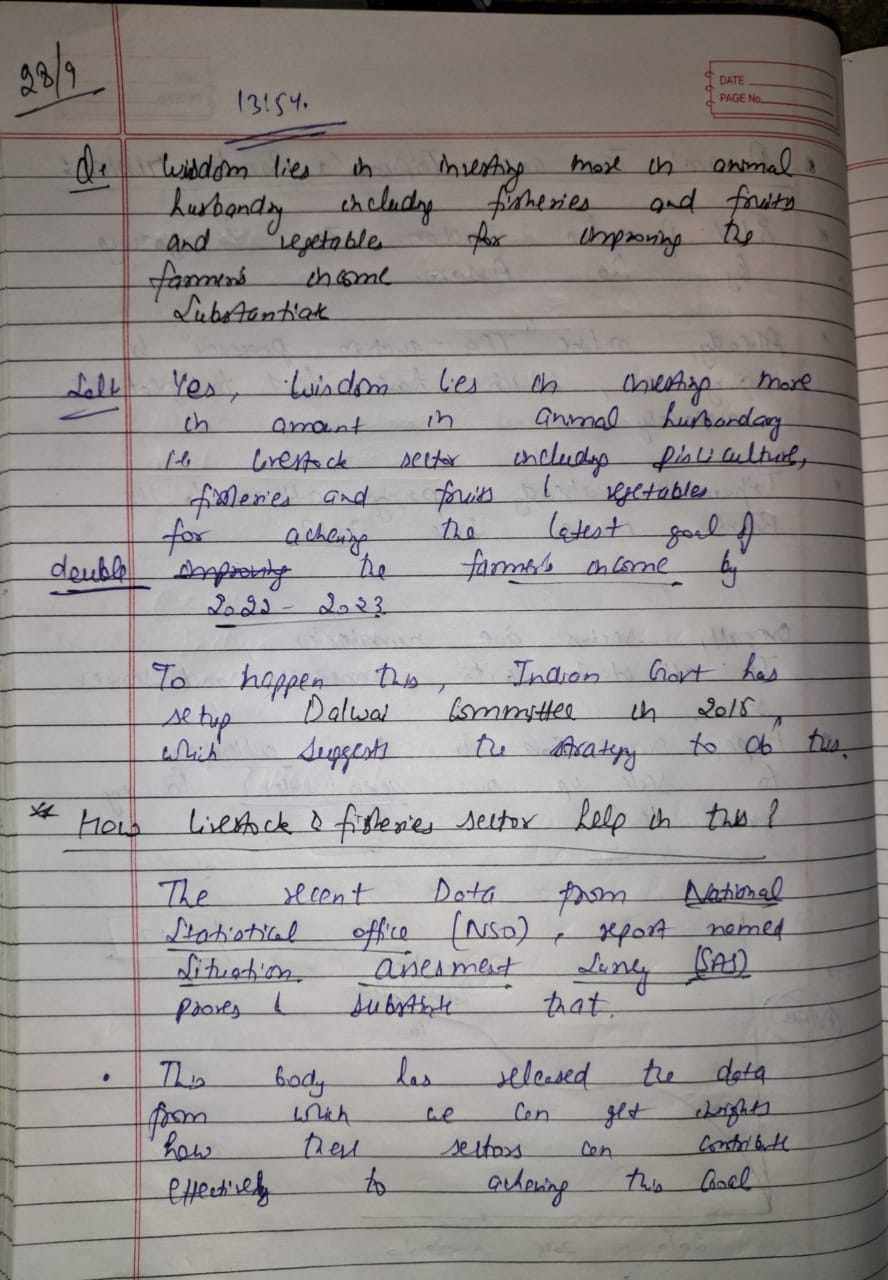 28/9
13:54.
DATE
PAGE No.
Q. Wisdom lies in investing more in animal
husbandry including fisheries and fruits
and vegetables for improving the
farmers income
Substantial
Yes, Wisdom lies in investing more
in amount in animal husbandary
i.e livestock sector including
fisheries and fruits & vegetables
for acheing the latest goal of
double improving the farmer's income by
2022-2023
To happen this, Indian Govt has
setup Dalwai Committee in 2018,
which suggests the stratepy to do this.
** How livestock & fisheries sector help in this?
The recent Data from National
Statistical office (NSO), report named
Situation assesment Survey (SAS)
proves & that.
• This body has released the data
from which we can get insights
how these sectors can contribute
effectively to achieving this Goal